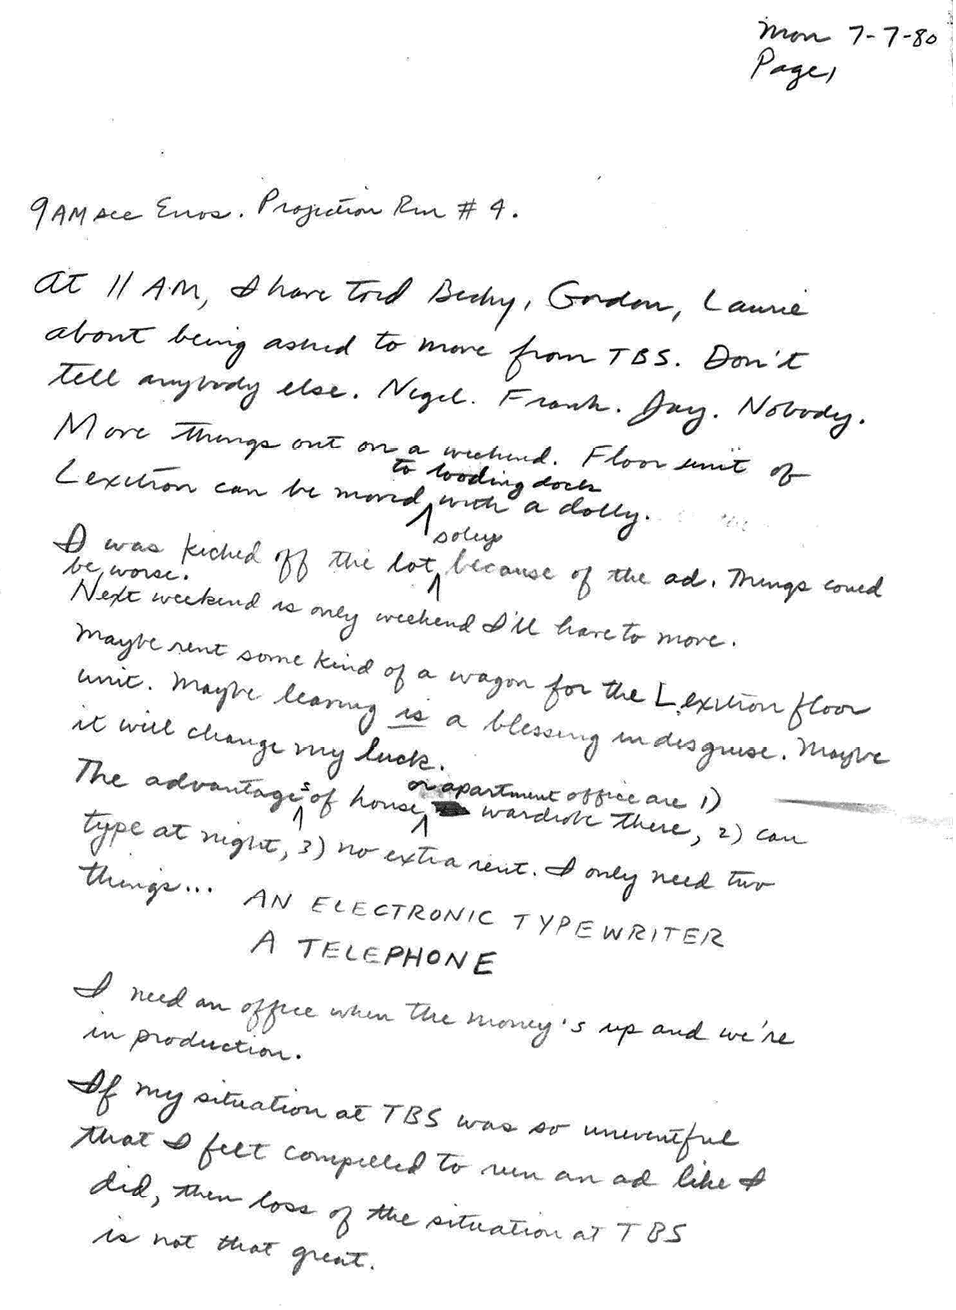 Mon 7-7-80
Page 1
9 AM see Enos. Projection Rm # 4.
At 11 AM, I have told Becky, Gordon, Laurie
about being asked to move from TBS. Don't
tell anybody else. Nigel. Frank. Jay. Nobody.
Move things out on a weekend. Floor unit of
to loading dock
Lexitron can be moved with a dolly.
soley
I was kicked off the lot because of the ad. Things could
be worse.
Next weekend is only weekend I'll have to move.
Maybe rent some kind of a wagon for the Lexitron floor
unit. Maybe leaving is a blessing in disguise. Maybe
it will change my luck.
or apartment office are 1)
The advantages of house wardrobe there, 2) can
type at night, 3) no extra rent. I only need two
things...
AN ELECTRONIC TYPEWRITER
A TELEPHONE
I need an office when the money's up and we're
in production.
If my situation at TBS was so uneventful
that I felt compelled to run an ad like I
did, then loss of the situation at TBS
is not that great.